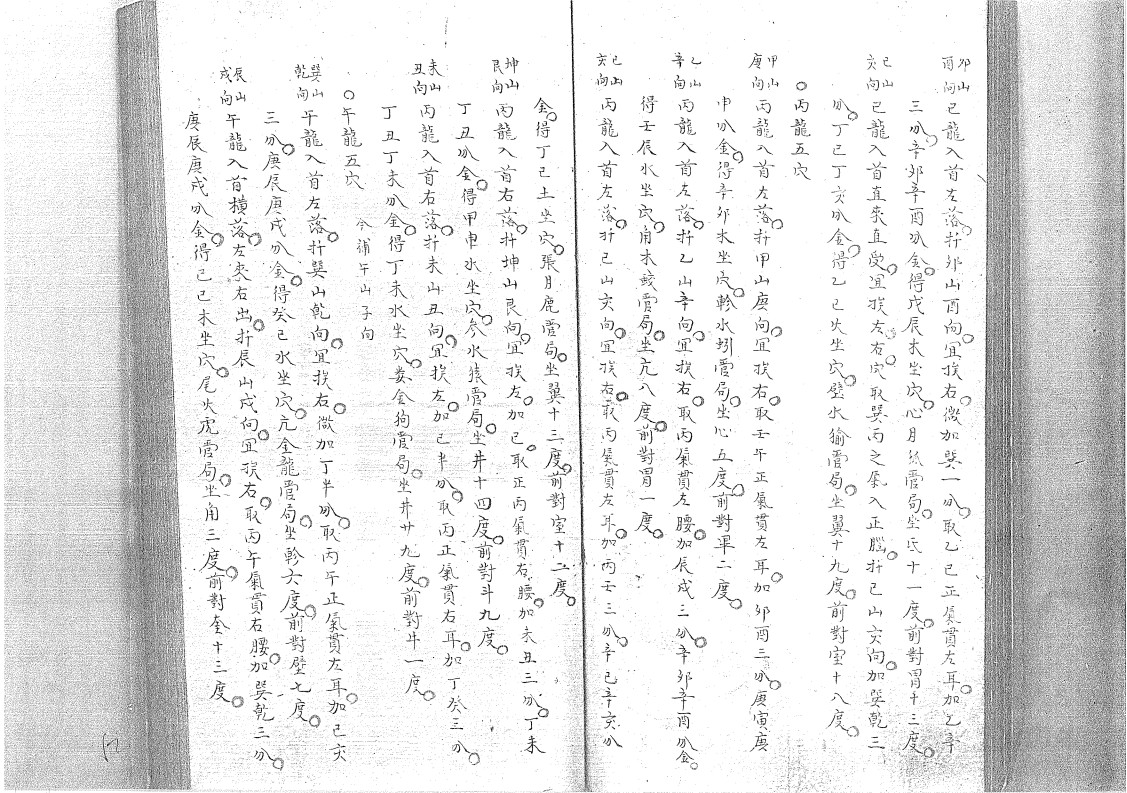 卯山酉向 巳龍入首左落扦卯山酉向宜挨右微加巽一分取乙巳正氣貫左耳加乙辛
三分辛卯辛酉分金得戊辰木坐穴心月狐管局坐氐十一度前對胃十三度
巳山亥向 巳龍入首直來直受宜挨左右穴取巽丙之氣入正腦扦巳山亥向加巽乾三
分丁巳丁亥分金得乙巳火坐穴壁水㺄管局坐翼十九度前對室十八度
○丙龍五穴
甲山庚向 丙龍入首左落扦甲山庚向宜挨右取壬午正氣貫左耳加卯酉三分庚寅庚
申分金得辛卯木坐穴軫水蚓管局坐心五度前對畢二度
乙山辛向 丙龍入首左落扦乙山辛向宜挨右取丙氣貫左腰加辰戌三分辛卯辛酉分金
得壬辰水坐穴角木蛟管局坐亢八度前對胃一度
巳山亥向 丙龍入首左落扦巳山亥向宜挨右取丙氣貫左耳加丙壬三分辛巳辛亥分
金得丁巳土坐穴張月鹿管局坐翼十三度前對室十二度
坤山艮向 丙龍入首右落扦坤山艮向宜挨左加巳取正丙氣貫右腰加未丑三分丁未
丁丑分金得甲申水坐穴參水猿管局坐井十四度前對斗九度
未山丑向 丙龍入首右落扦未山丑向宜挨左加巳半分取丙正氣貫右耳加丁癸三分
丁丑丁未分金得丁未水坐穴婁金狗管局坐井廿九度前對牛一度
○午龍五穴 今補午山子向
巽山乾向 午龍入首左落扦巽山乾向宜挨右微加丁半分取丙午正氣貫左耳加巳亥
三分庚辰庚戌分金得癸巳水坐穴亢金龍管局坐軫六度前對壁七度
辰山戌向 午龍入首橫落左來右出扦辰山戌向宜挨右取丙午氣貫右腰加巽乾三分
庚辰庚戌分金得己巳木坐穴尾火虎管局坐角三度前對奎十三度